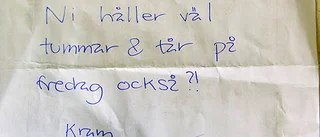 Ni håller väl
tummar & tår på
fredag också?!
Kram